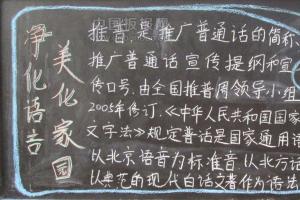 净化语言
美化家园
推普是推广普通话的简称
推广普通话宣传提纲和宣
传口号,由全国推普周领导小组
2005年修订,《中华人民共和国国家
文字法》规定普话是国家通用语
以北京语音为标准音以北方话
以典范的现代白话文著作为语法